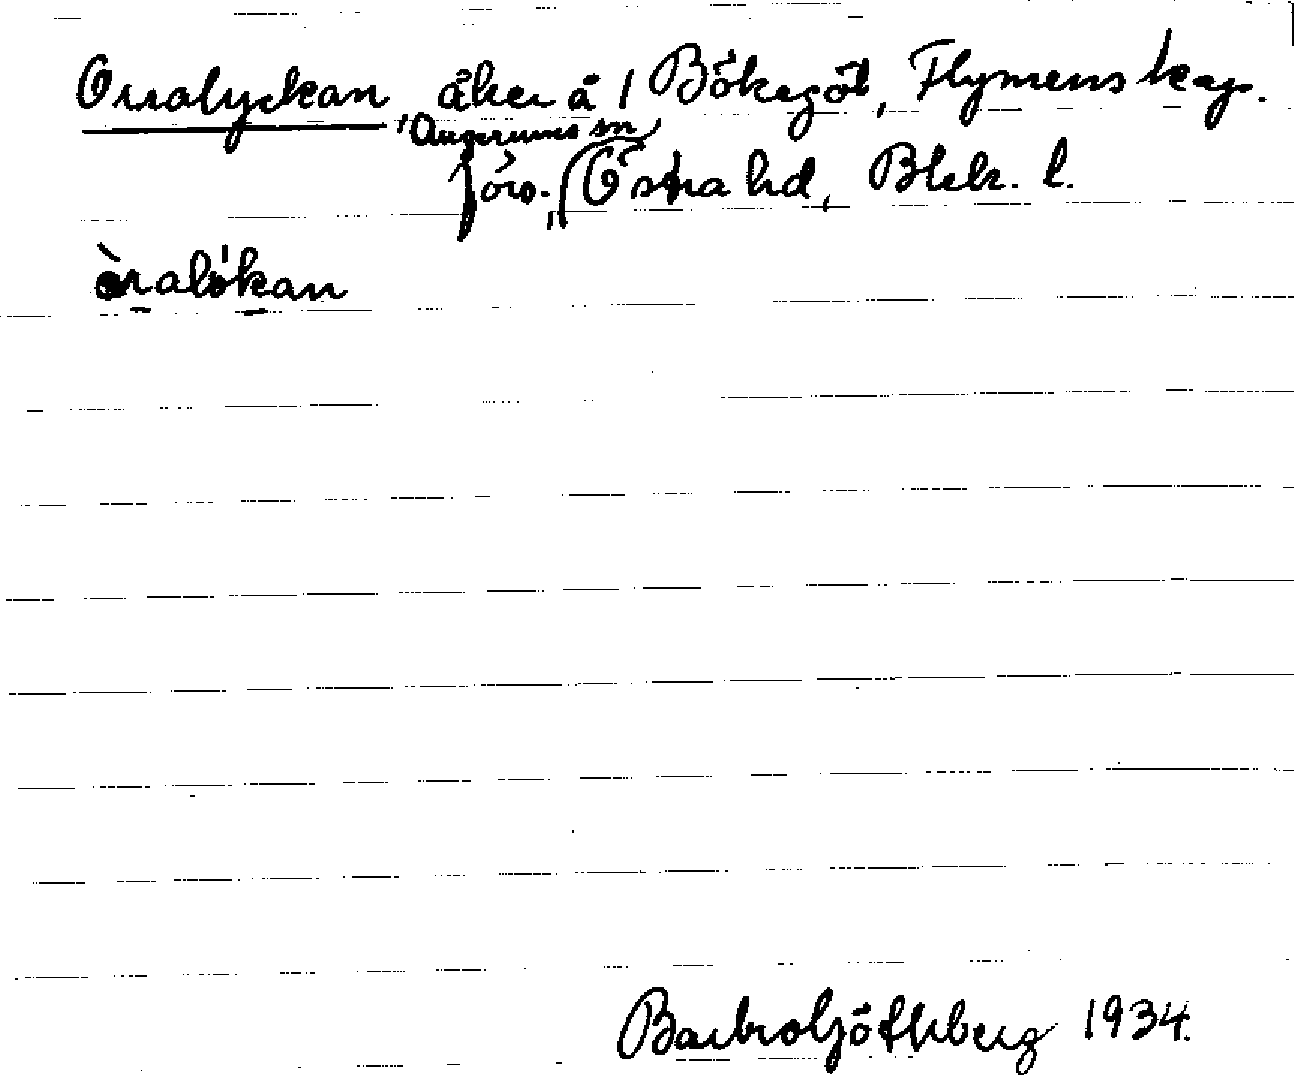 Orralyckan, åker å 1 Bökegöl, Flymens kap.
Augerums sn
förs., Östra hd, Blek. l.
òralökan
Barbro Göthberg 1934.